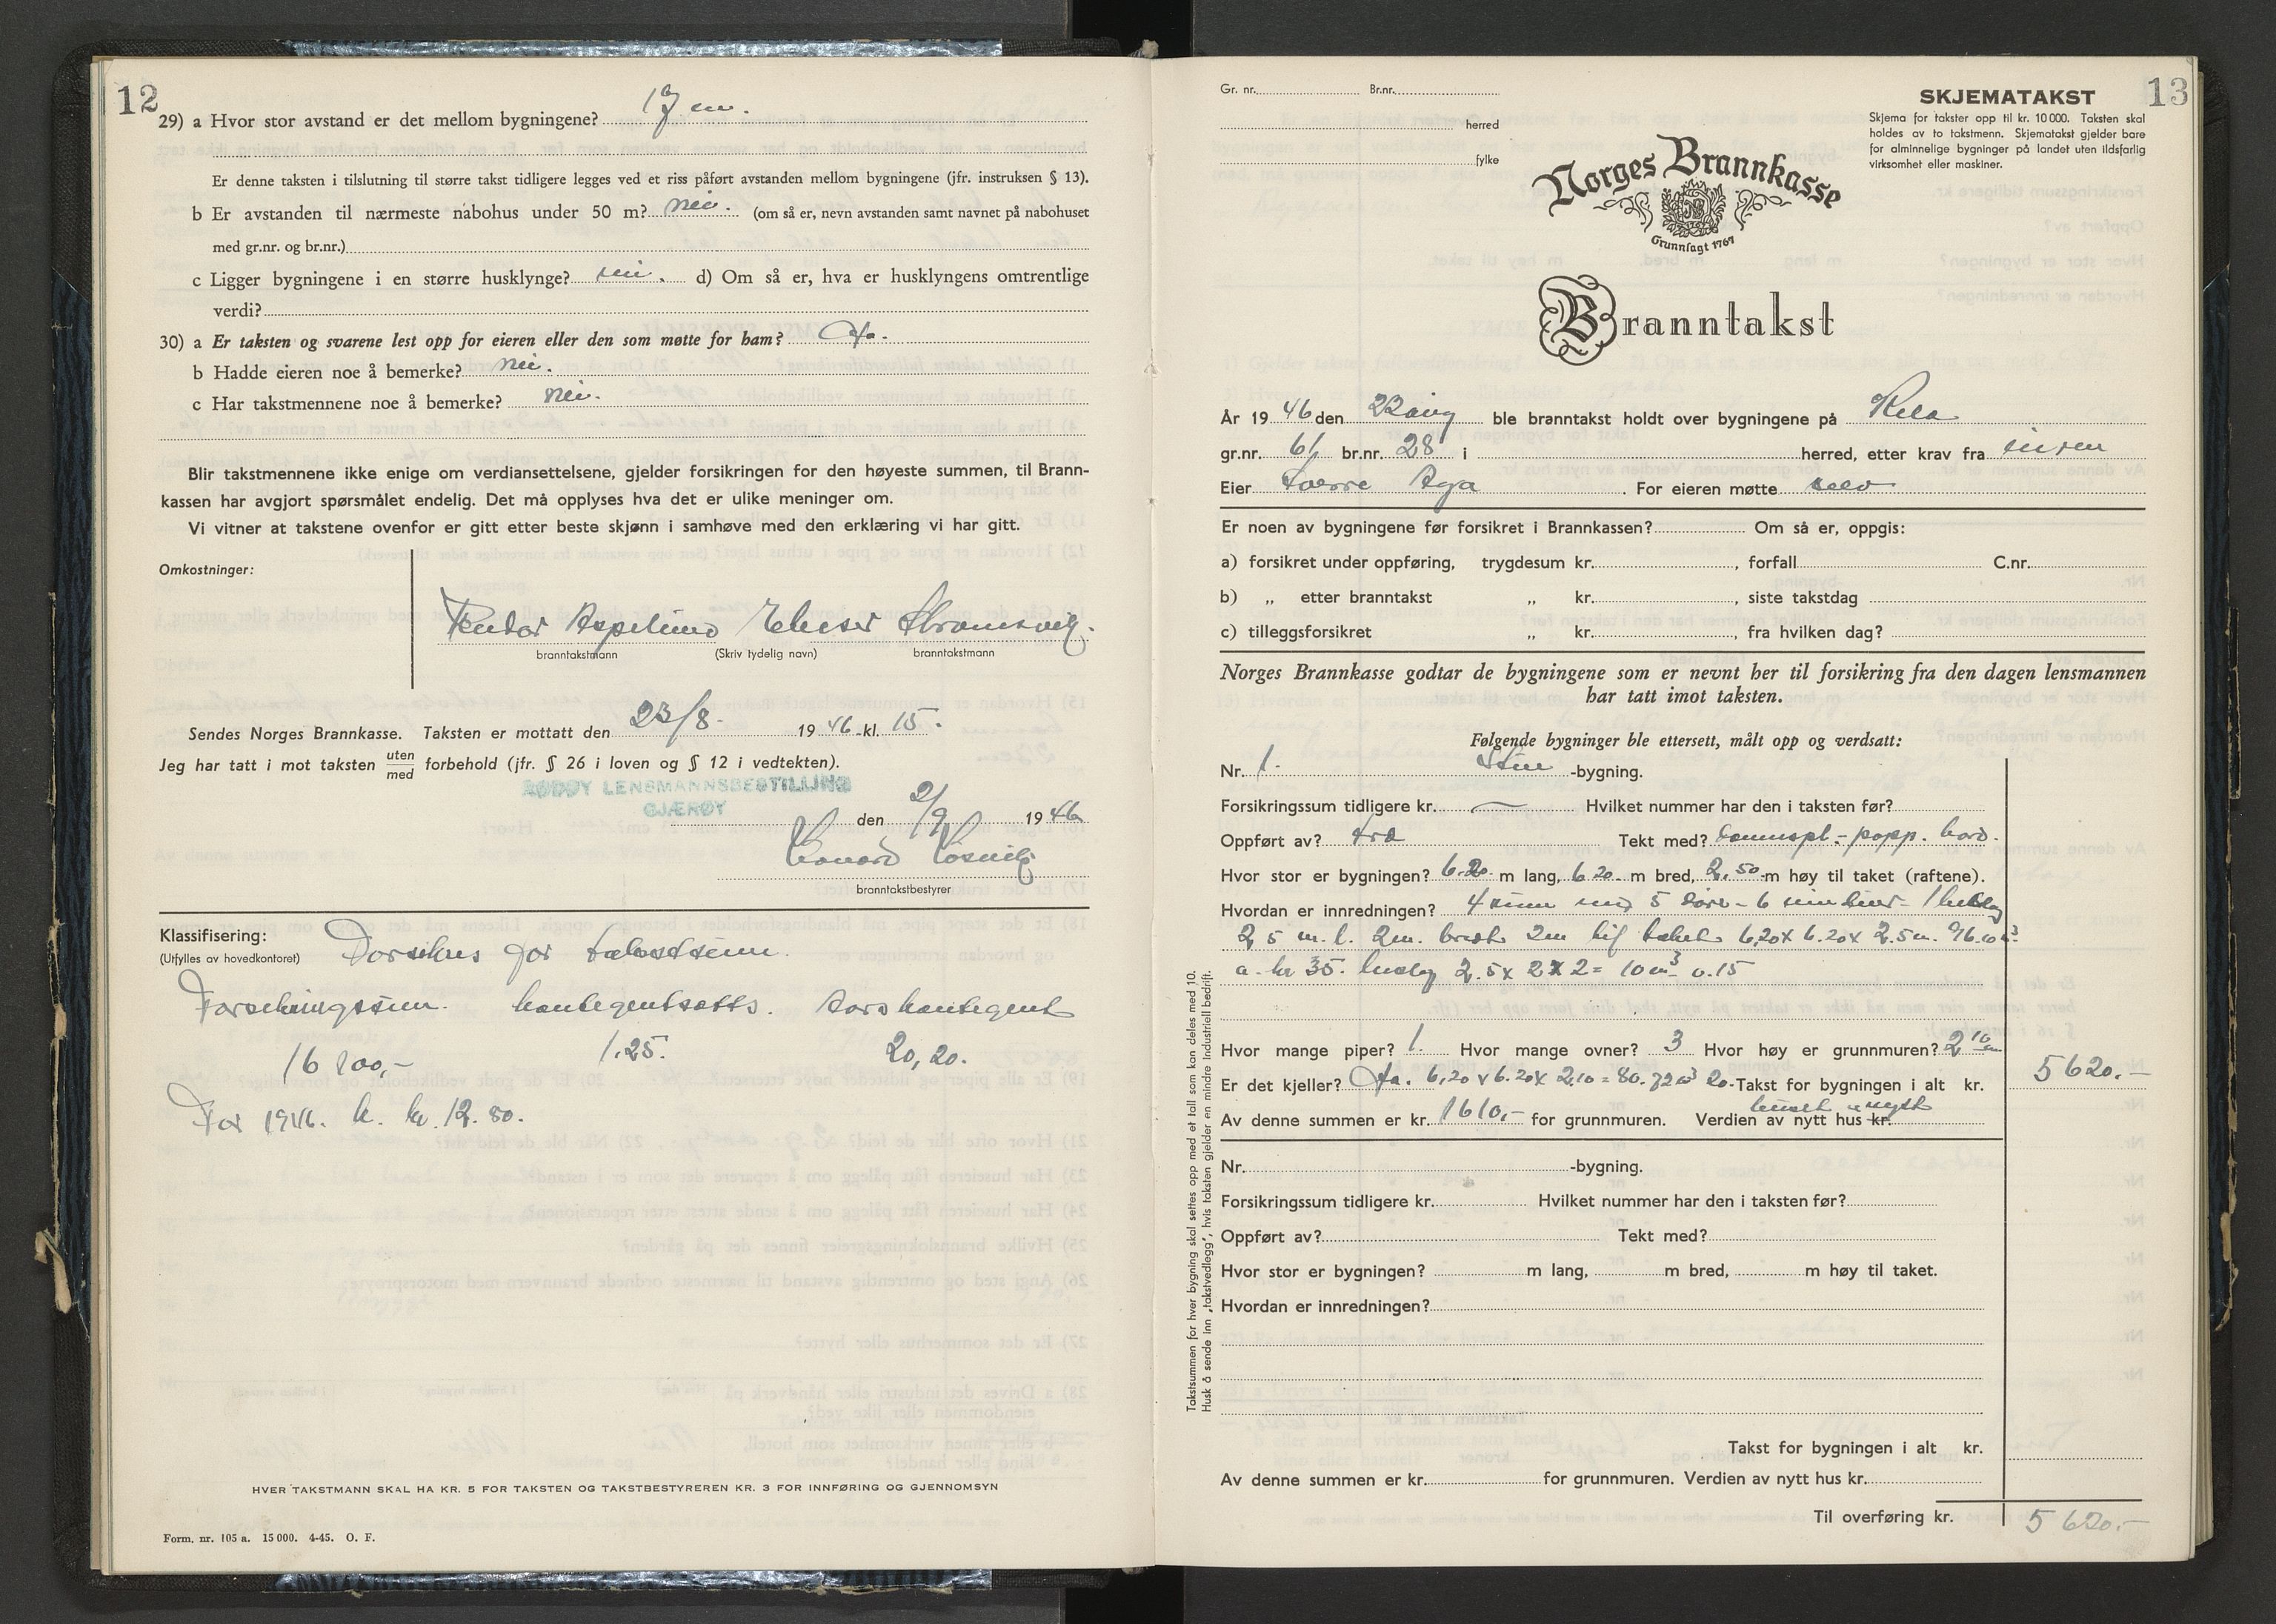 12
29) a Hvor stor avstand er det mellom bygningene? 17 m.
Er denne taksten i tilslutning til større takst tidligere legges ved et riss påført avstanden mellom bygningene (jfr. instruksen § 13).
b Er avstanden til nærmeste nabohus under 50 m? nei. (om så er, nevn avstanden samt navnet på nabohuset
med gr.nr. og br.nr.)
c Ligger bygningene i en større husklynge? nei. d) Om så er, hva er husklyngens omtrentlige
verdi?
30) a Er taksten og svarene lest opp for eieren eller den som møtte for ham? Ja.
b Hadde eieren noe å bemerke? nei.
c Har takstmennene noe å bemerke? nei.
Blir takstmennene ikke enige om verdiansettelsene, gjelder forsikringen for den høyeste summen, til Brann-
kassen har avgjort spørsmålet endelig. Det må opplyses hva det er ulike meninger om.
Vi vitner at takstene ovenfor er gitt etter beste skjønn i samhøve med den erklæring vi har gitt.
Omkostninger:
Aspelund
branntakstmann (Skriv tydelig navn) branntakstmann
Sendes Norges Brannkasse. Taksten er mottatt den 23/8 1946 kl. 15.
Jeg har tatt i mot taksten uten
med forbehold (jfr. § 26 i loven og § 12 i vedtekten).
RØDØY LENSMANNSBESTILLING
GJÆRØY
den 2/9 1946
branntakstbestyrer
Klassifisering:
(Utfylles av hovedkontoret)
for takstsum.
Forsikringssum. kontegentsatts. Aarskontegent
1.25. 20,20.
For 1946. kr. 12.80.
HVER TAKSTMANN SKAL HA KR. 5 FOR TAKSTEN OG TAKSTBESTYREREN KR. 3 FOR INNFØRING OG GJENNOMSYN
Form. nr. 105 a. 15 000. 4-45. O. F.
Gr. nr. Br.nr.
herred
fylke
SKJEMATAKST
13
Skjema for takster opp til kr. 10 000. Taksten skal
holdes av to takstmenn. Skjematakst gjelder bare
for alminnelige bygninger på landet uten ildsfarlig
virksomhet eller maskiner.
Norges Brannkasse
Grunnlagt 1767
Branntakst
År 1946 den 22 aug ble branntakst holdt over bygningene på Kila
gr.nr. 61 br.nr. 28 i herred, etter krav fra eieren
Eier Sverre Aga. For eieren møtte selv
Er noen av bygningene før forsikret i Brannkassen? Om så er, oppgis:
a) forsikret under oppføring, trygdesum kr. , forfall C.nr.
b) „ etter branntakst „ kr. , siste takstdag
c) tilleggsforsikret „ kr. , fra hvilken dag?
Norges Brannkasse godtar de bygningene som er nevnt her til forsikring fra den dagen lensmannen
har tatt imot taksten.
Følgende bygninger ble ettersett, målt opp og verdsatt:
Nr. 1. Stue -bygning.
Forsikringssum tidligere kr. — Hvilket nummer har den i taksten før?
Oppført av? tre Tekt med? papp. bord.
Hvor stor er bygningen? 6.20 m lang, 6 20 m bred, 2,50 m høy til taket (raftene).
Hvordan er innredningen? 4 rum med 5 dører - 6 vinduer -
2 5 m. l. 2m. bredt 2m til taket 6,20 x 6.20 x 2.5 m. 96.10 m³.
a. kr 35. 2.5 x 2 x 2 = 10 m³ a. 15
Hvor mange piper? 1. Hvor mange ovner? 3 Hvor høy er grunnmuren? 2 10 m
Er det kjeller? Ja. 6,20 x 6.20 x 2,10 = 80.72 m³ 20. Takst for bygningen i alt kr. 5620.-
huset nytt
Av denne summen er kr. 1610,- for grunnmuren. Verdien av nytt hus kr.
Nr. -bygning.
Forsikringssum tidligere kr. Hvilket nummer har den i taksten før?
Oppført av? Tekt med?
Hvor stor er bygningen? m lang, m bred, m høy til taket.
Hvordan er innredningen?
Takst for bygningen i alt kr.
Av denne summen er kr. for grunnmuren. Verdien av nytt hus kr.
Til overføring kr. 5 620.-
Takstsummen for hver bygning skal settes opp med et tall som kan deles med 10.
Husk å sende inn „takstvedlegg”, hvis taksten gjelder en mindre industriell bedrift.